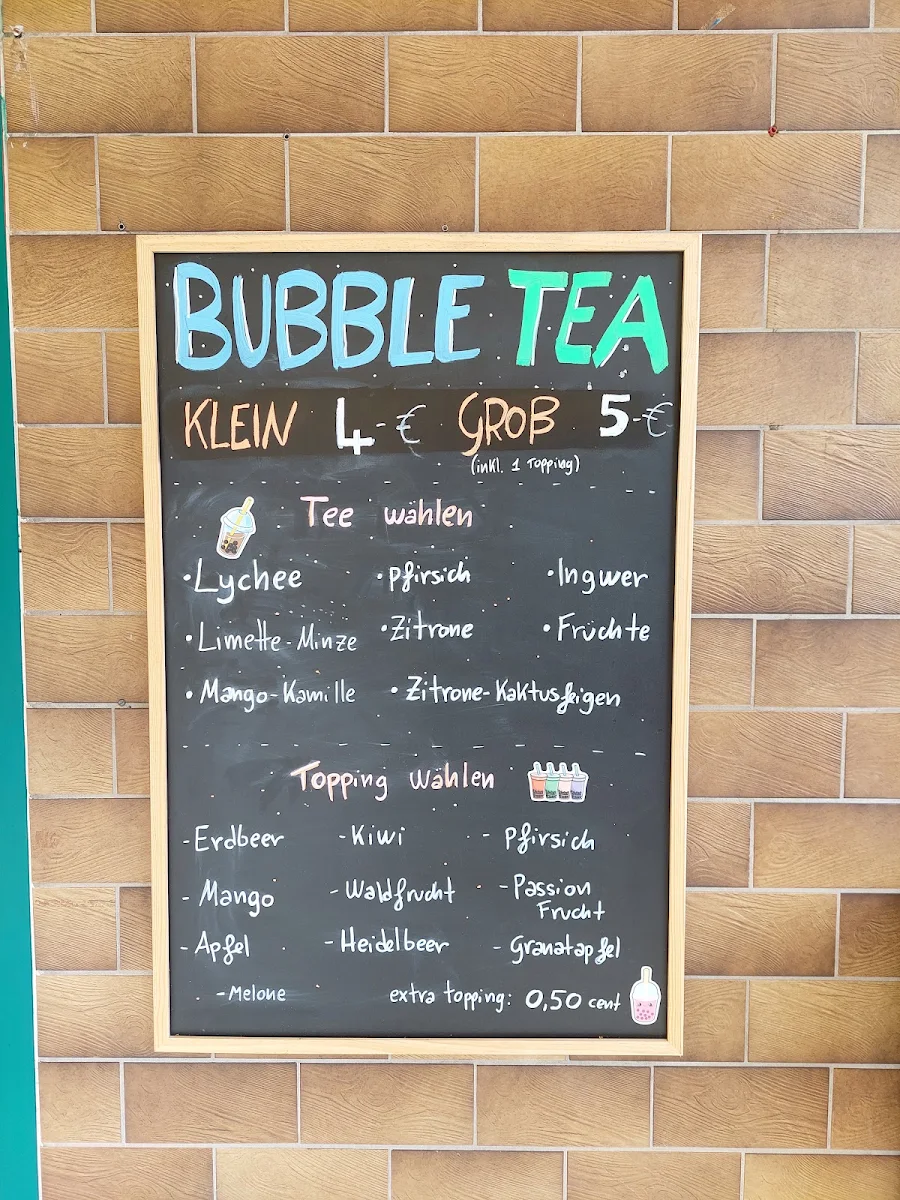 BUBBLE TEA
KLEIN 4-€ GROß 5-€
(inkl. 1 Topping)
Tee wählen
•Lychee •Pfirsich •Ingwer
•Limette-Minze •Zitrone •Früchte
•Mango-Kamille •Zitrone-Kaktusfeigen
Topping wählen
-Erdbeer -Kiwi - Pfirsich
- Mango -Waldfrucht -Passion
Frucht
- Apfel - Heidelbeer - Granatapfel
-Melone extra topping: 0,50 cent